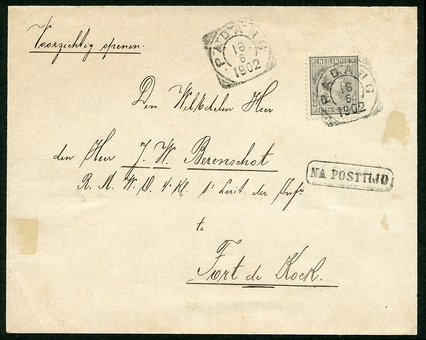 Voorzichtig openen.
PADANG
16
6
1902
NED-INDIE
PADANG
16
6
1902
Den WelEdelen Heer
den Heer J. W. Berenschot
R. M. W. O. 4e Kl. 1e Luit. der Infie
NA POSTTIJD
te
Fort de Kock.